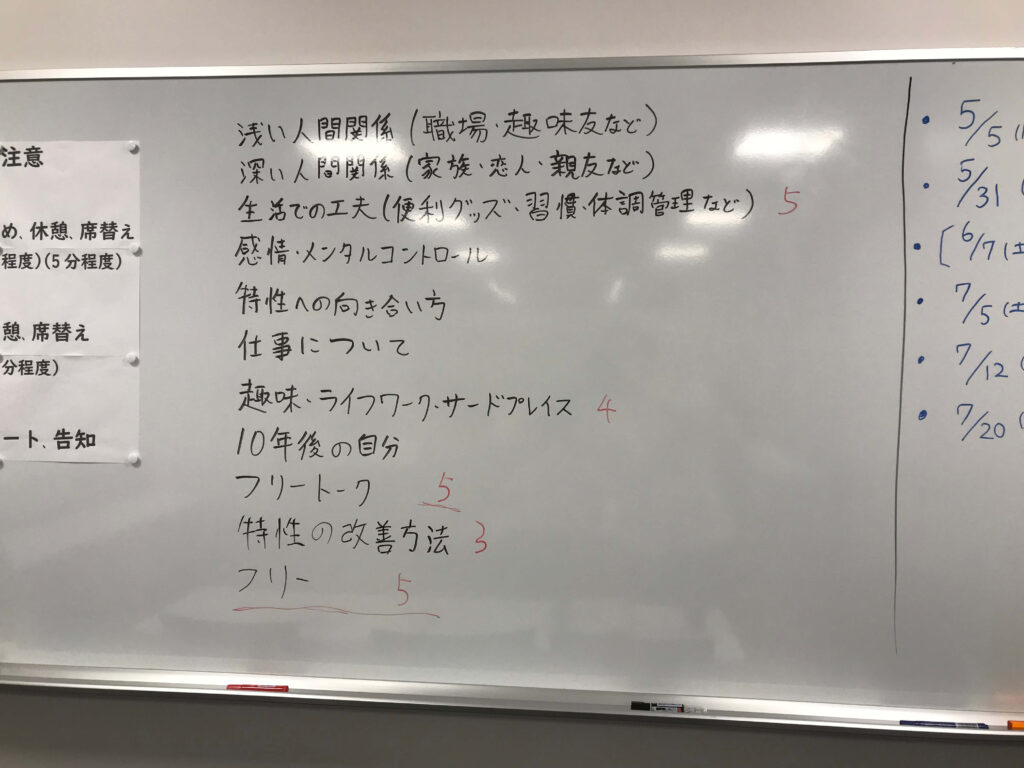 注意
め、休憩、席替え
程度)(5分程度)
憩、席替え
分程度)
ート、告知
浅い人間関係(職場・趣味友など)
深い人間関係(家族・恋人・親友など)
生活での工夫(便利グッズ・習慣・体調管理など) 5
感情・メンタルコントロール
特性への向き合い方
仕事について
趣味・ライフワーク・サードプレイス 4
10年後の自分
フリートーク 5
特性の改善方法 3
フリー 5
・5/5(
・5/31(
・[6/7(土
・7/5(土
・7/12(
・7/20(